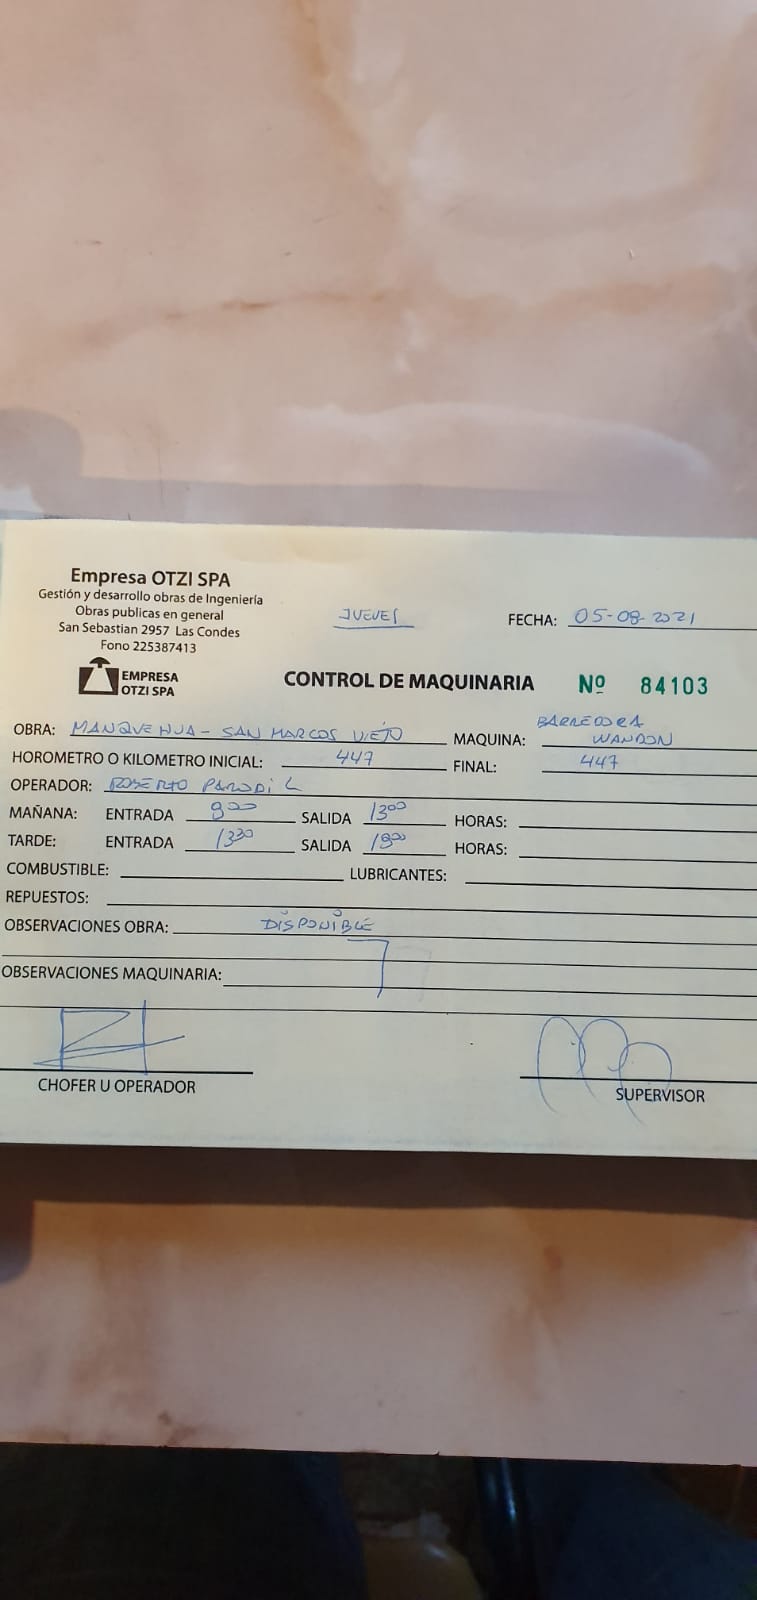 Empresa OTZI SPA
Gestión y desarrollo obras de Ingeniería
Obras publicas en general
San Sebastian 2957 Las Condes
Fono 225387413
JUEVES
FECHA: 05-08-2021
EMPRESA
OTZI SPA
CONTROL DE MAQUINARIA Nº 84103
OBRA: MANQUEHUA - SAN MARCOS VIEJO MAQUINA: BARREDORA
WANDON
HOROMETRO O KILOMETRO INICIAL: 447 FINAL: 447
OPERADOR: ROBERTO PARODI L
MAÑANA: ENTRADA 800 SALIDA 1300 HORAS:
TARDE: ENTRADA 1330 SALIDA 1800 HORAS:
COMBUSTIBLE: LUBRICANTES:
REPUESTOS:
OBSERVACIONES OBRA: DISPONIBLE
OBSERVACIONES MAQUINARIA:
CHOFER U OPERADOR
SUPERVISOR